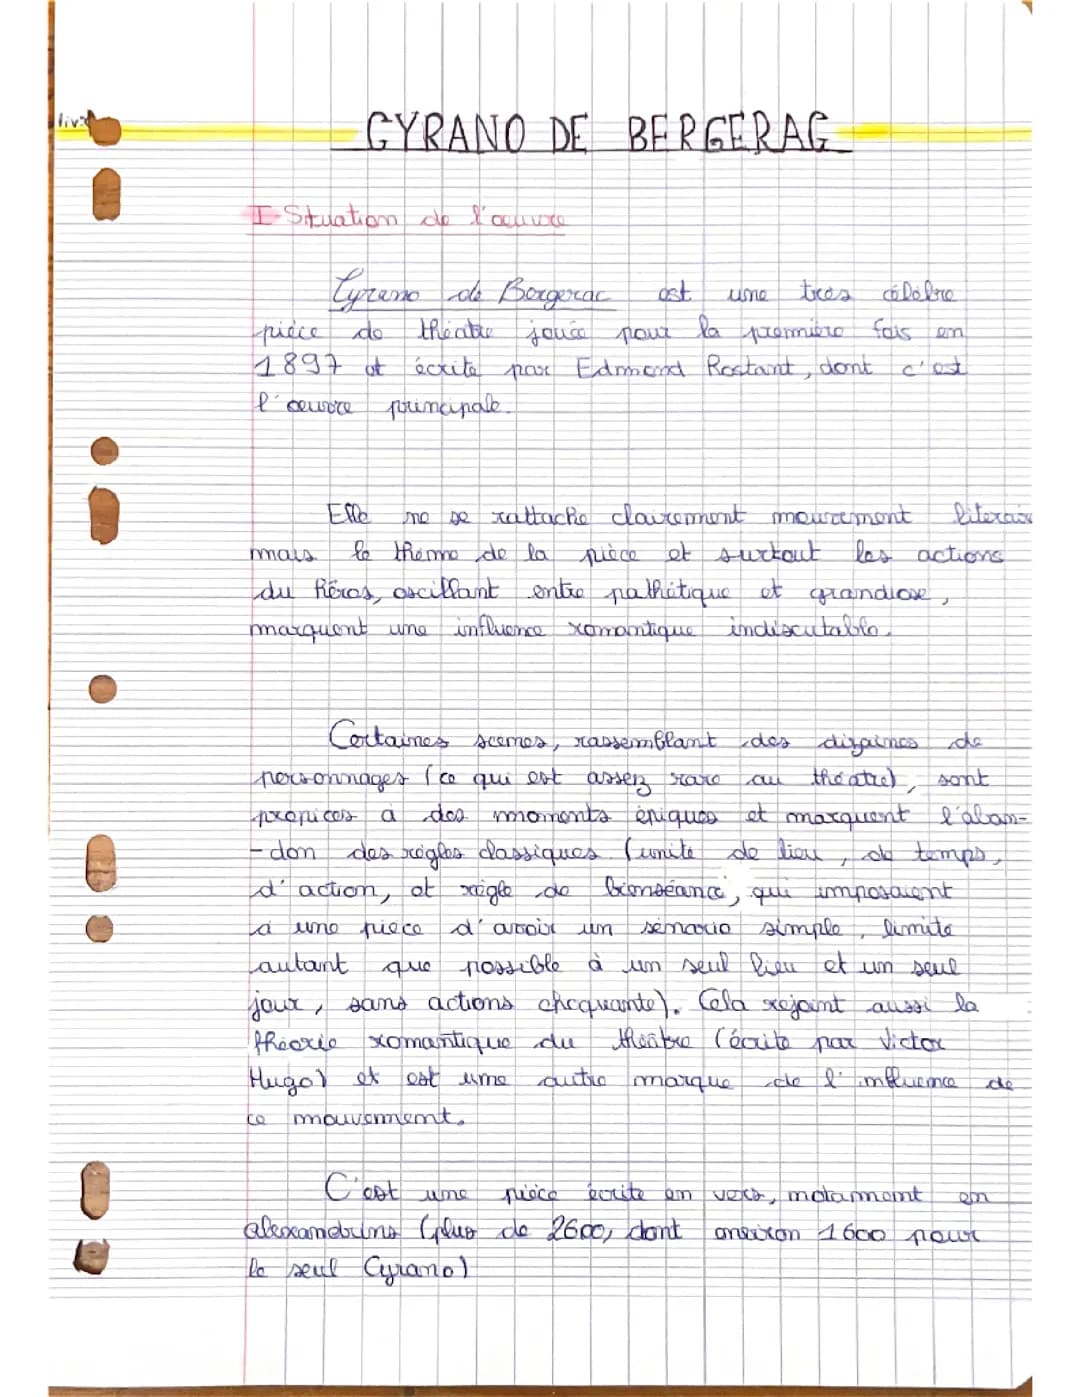 CYRANO DE BERGERAC
I Situation de l'œuvre
Cyrano de Bergerac est une très célèbre
pièce de théâtre jouée pour la première fois en
1897 et écrite par Edmond Rostant, dont c'est
l'œuvre principale.
Elle ne se rattache clairement mouvement literair
mais le thème de la pièce et surtout les actions
du Héros, oscillant entre pathétique et grandiose,
marquent une influence romantique indiscutable.
Certaines scenes, rassemblant des dizaines de
personnages (ce qui est assez rare au théatre), sont
propices à des moments épiques et marquent l'aban-
-don des règles classiques (unité de lieu, de temps,
d'action, et règle de bienséance, qui imposaient
à une pièce d'avoir un sénario simple, limité
autant que possible à un seul lieu et un seul
jour, sans actions choquante). Cela rejoint aussi la
théorie romantique du théâtre (écrite par Victor
Hugo) et est une autre marque de l'influence de
ce mouvement.
C'est une pièce écrite en vers, notamment en
alexandrins (plus de 2600, dont environ 1600 pour
le seul Cyrano)